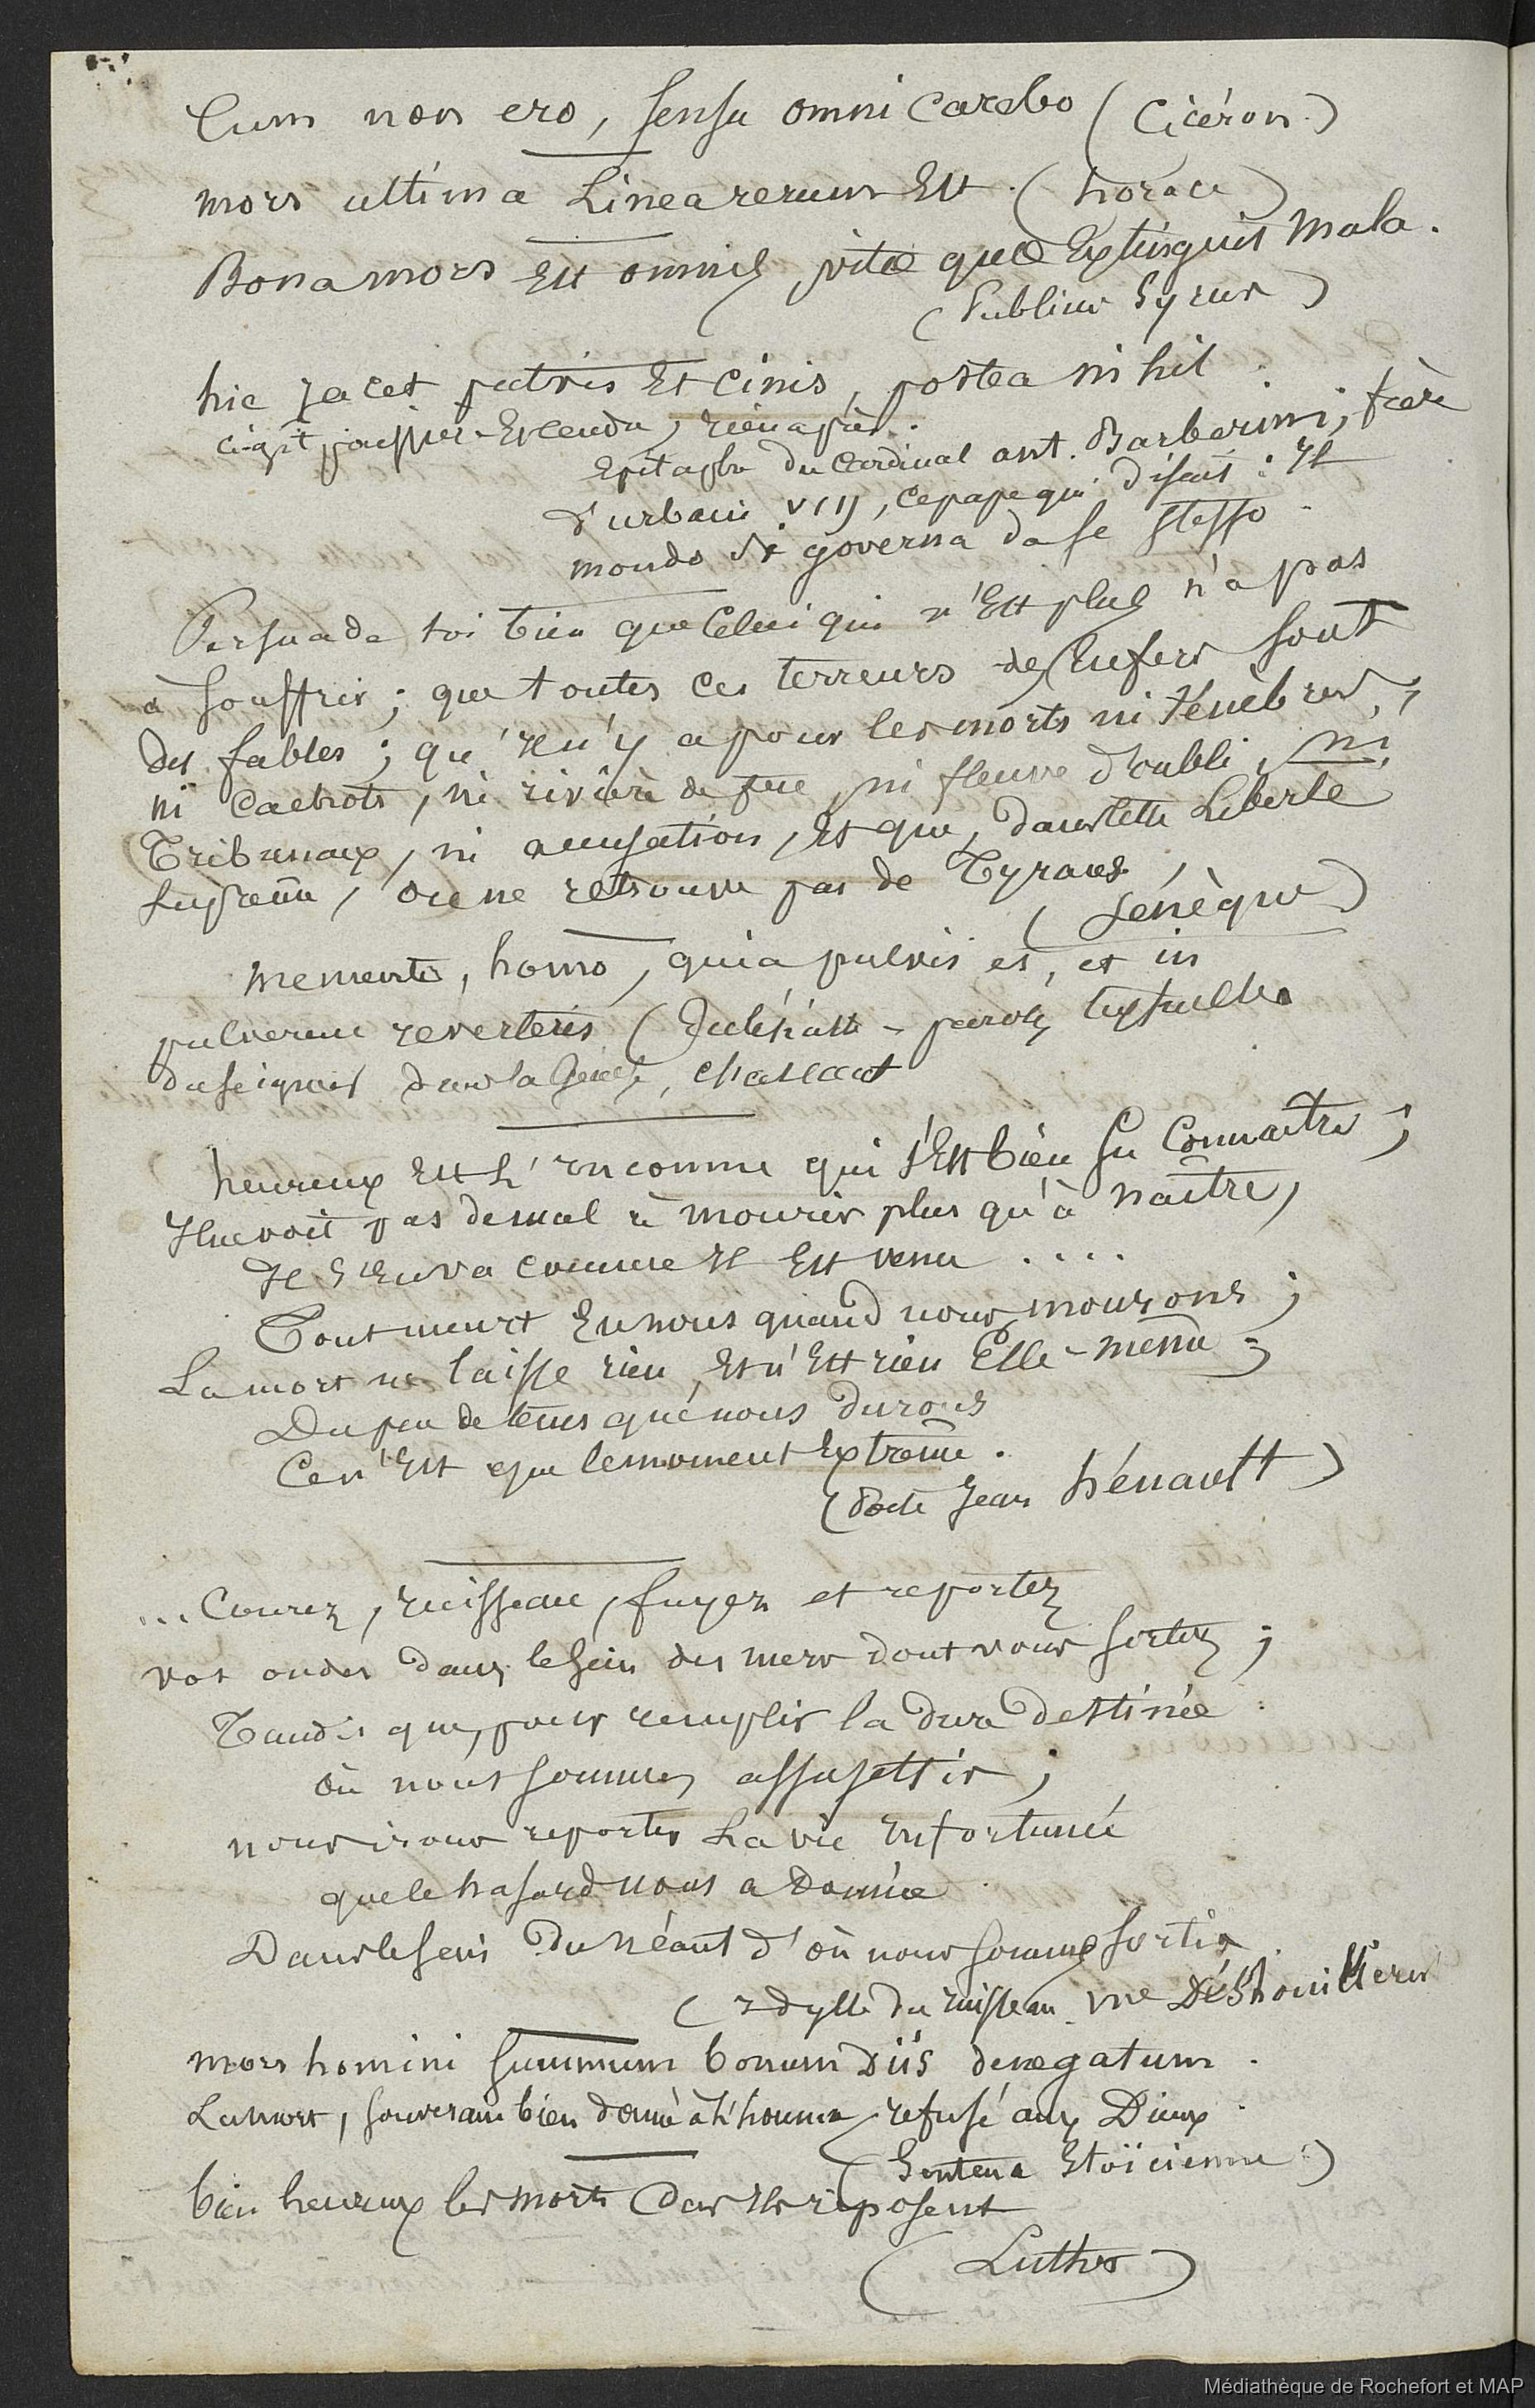 Cum non ero, sensu omni carebo (Cicéron.)
mors ultima Linea rerum Est. (horace)
Bona mors Est omnis vitæ quæ Extinguit Mala.
(Publius Syrus)
hic jacet putris Et Cinis, postea nihil.
ci-gît poussier Et cendre, rien après.
Epitaphe du Cardinal ant. Barberini, frère
d'urbain VIII, ce pape qui disait : Il
mondo si governa da se stesso.
Persuade toi bien que Celui qui n'Est plus n'a pas
à Souffrir ; que toutes ces terreurs des Enfers sont
des fables ; qu'Il n'y a pour les morts ni ténèbres,
ni Cachots, ni rivière de feu, ni fleuve d'oubli, ni
Tribunaux, ni accusation, Et que, dans cette Liberté
Suprême, on ne retrouve pas de Tyrans,
(Sénèque)
memento, homo, quia pulvis es, et in
pulverem reverteris (
du Seigneur dans la Genèse, chassant
heureux Est L'Inconnu qui s'Est bien su Connaitre ;
Il ne voit pas de mal à mourir plus qu'à naître,
Il s'En va comme Il Est venu ....
Tout meurt En nous quand nous mourons ;
La mort ne laisse rien, Et n'Est rien Elle-même ;
Du peu de tems que nous durons
Ce n'Est que le moment Extrême.
(Poëte Jean hénault)
... Courez, ruisseau, fuyez et reportez
vos ondes dans le Sein des mers dont vous sortez ;
Tandis que, pour remplir la dure destinée
où nous sommes assujettis ;
nous irons reporter La vie Infortunée
que le hasard nous a Donnée
Dans le sein du néant d'où nous sommes sortis
(Idylle du ruisseau. Déshouillères
mors homini summum bonum Diis denegatum.
La mort, souverain bien donné à L'homme, refusé aux Dieux.
(Sentence Stoïcienne.)
bien heureux les morts Car Ils reposent
(Luther)
Médiathèque de Rochefort et MAP